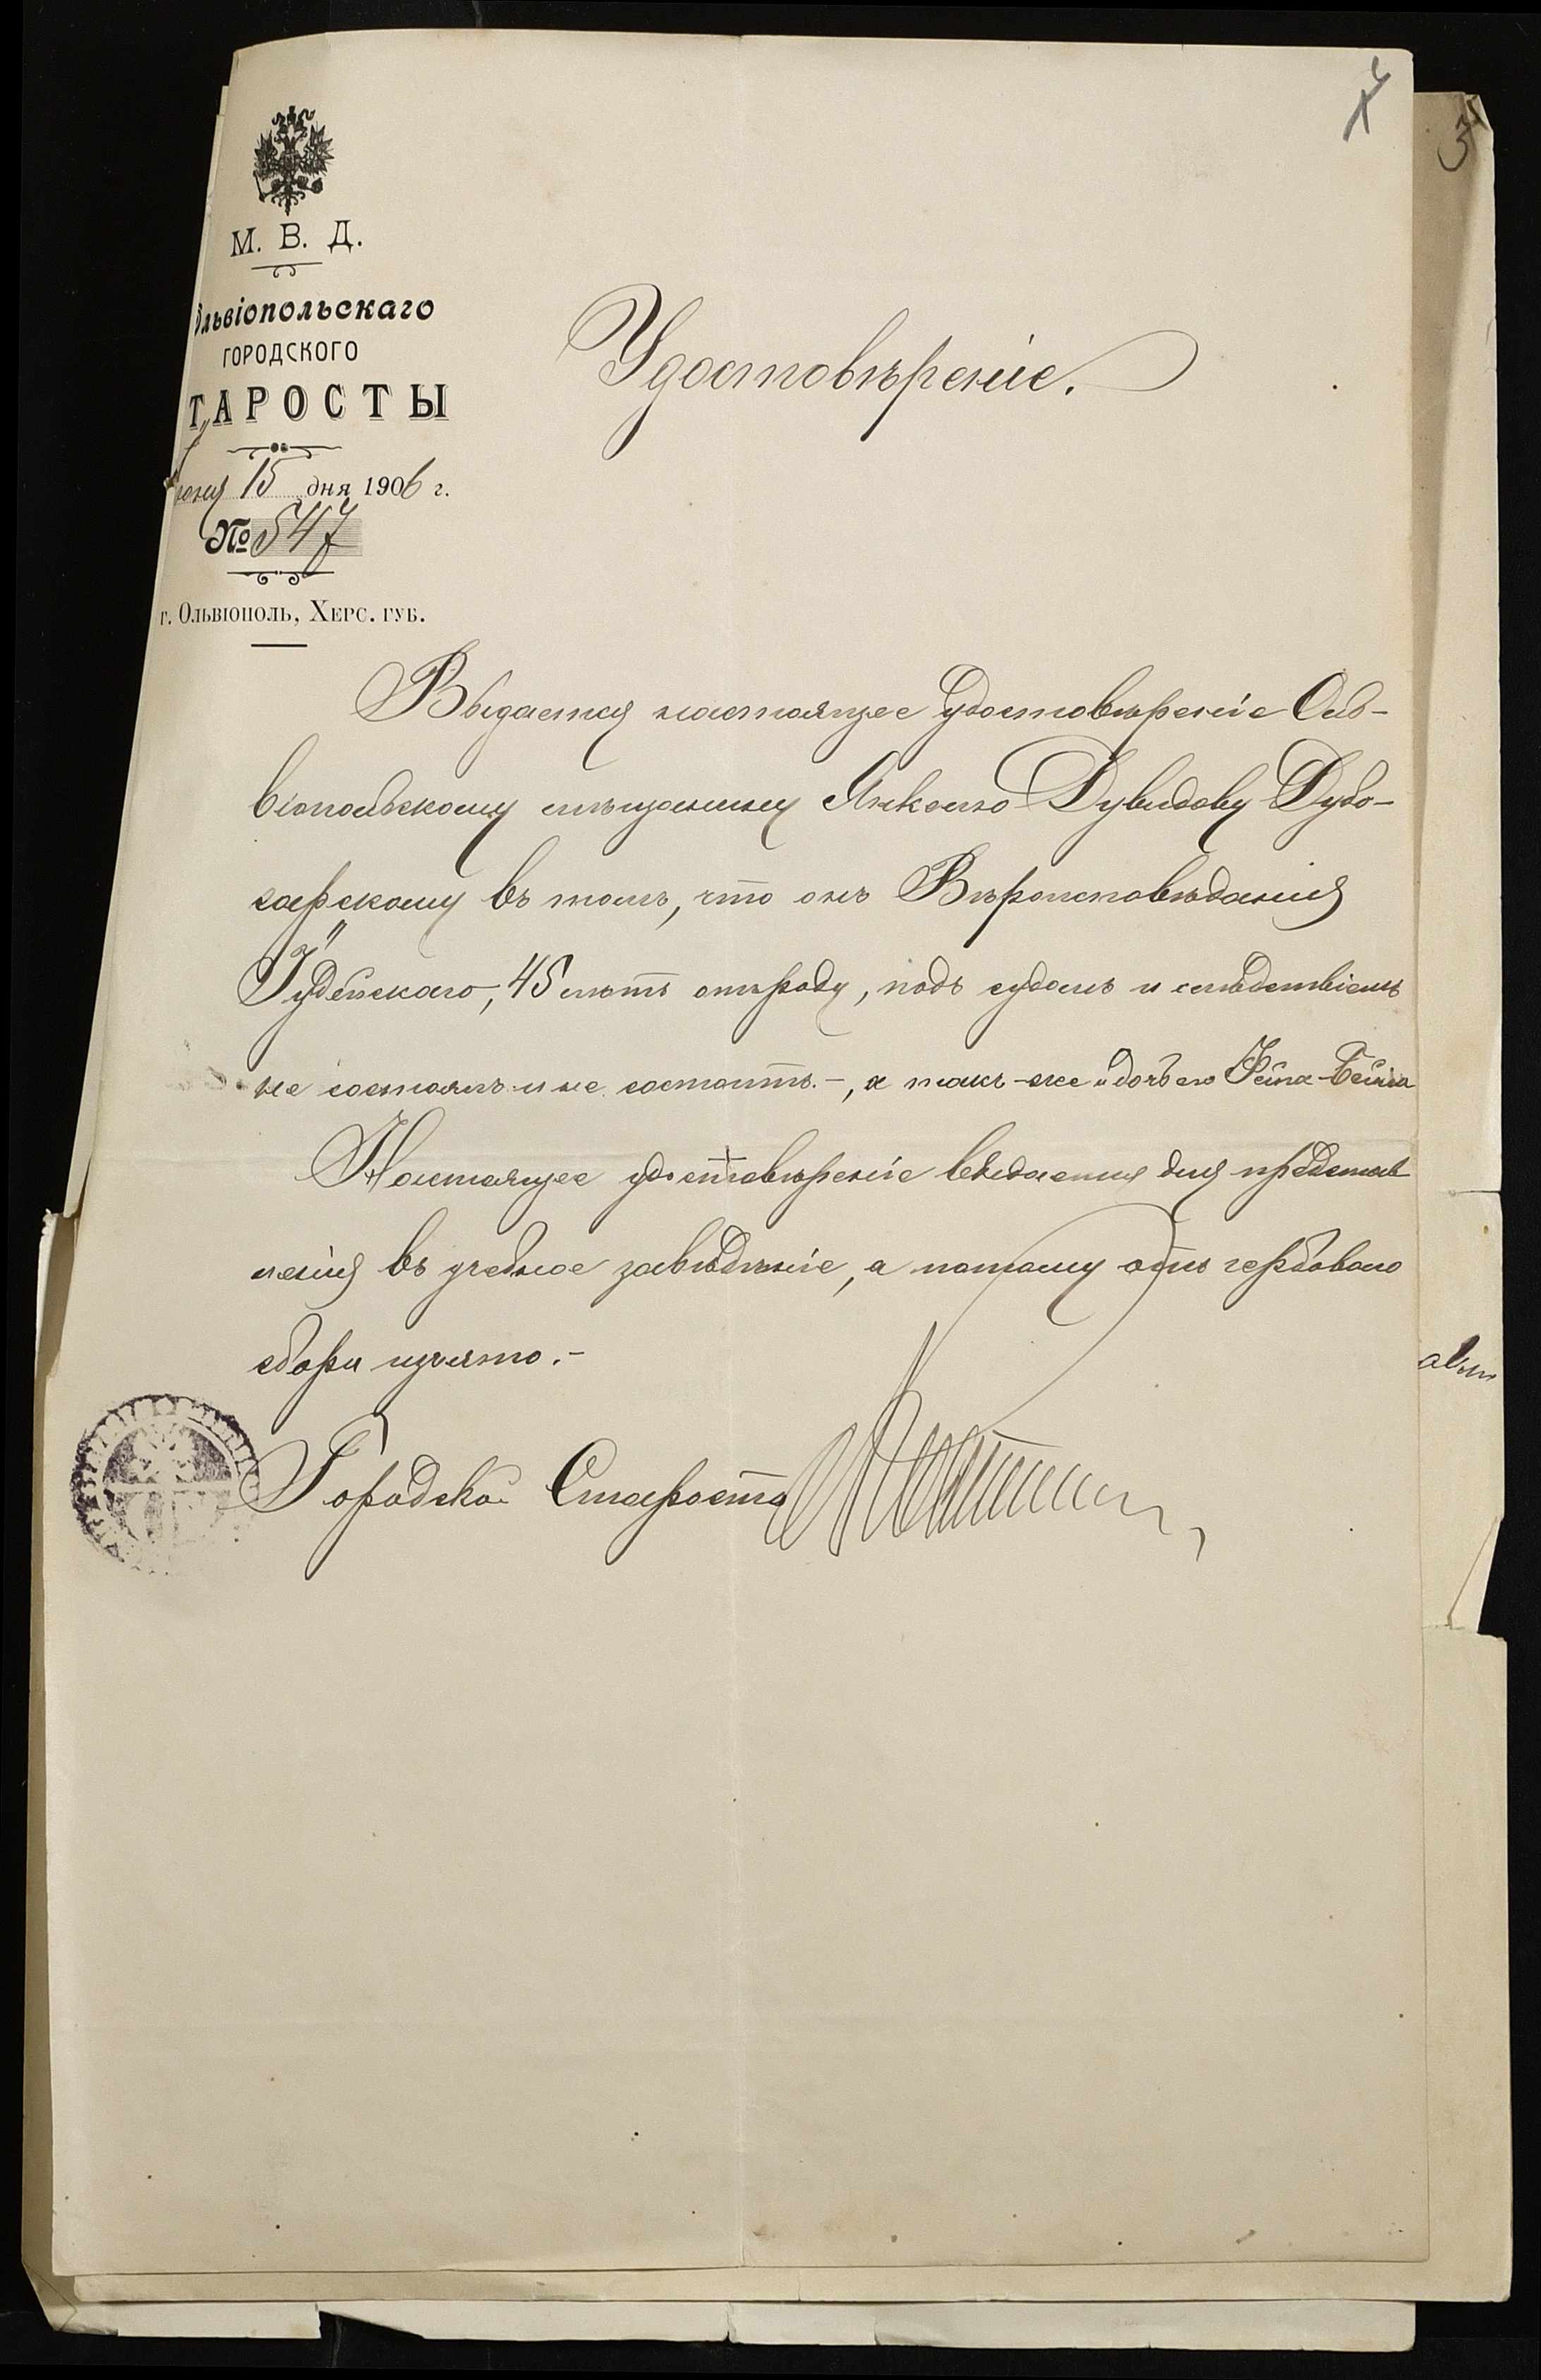 7
3
М. В. Д.
Ольвіопольскаго
ГОРОДСКОГО
ТАРОСТЫ
Іюня 15 дня 1906 г.
№ 547
г. Ольвіополь, Херс. губ.
Удостовѣреніе.
Выдается настоящее удостовѣреніе Оль-
віопольскому мѣщанину Янкелю Дувидову Дубо-
сарскому въ томъ, что онъ Вѣроисповѣданія
Іудейскаго, 45 лѣтъ отъ роду, подъ судомъ и слѣдствіемъ
не состоялъ и не состоитъ. -, а такъ-же и дочь его Хейла-Бейла
Настоящее удостовѣреніе выдается для представ
ленія въ учебное заведеніе, а потому отъ гербоваго
сбора изъято.-
Городской Староста